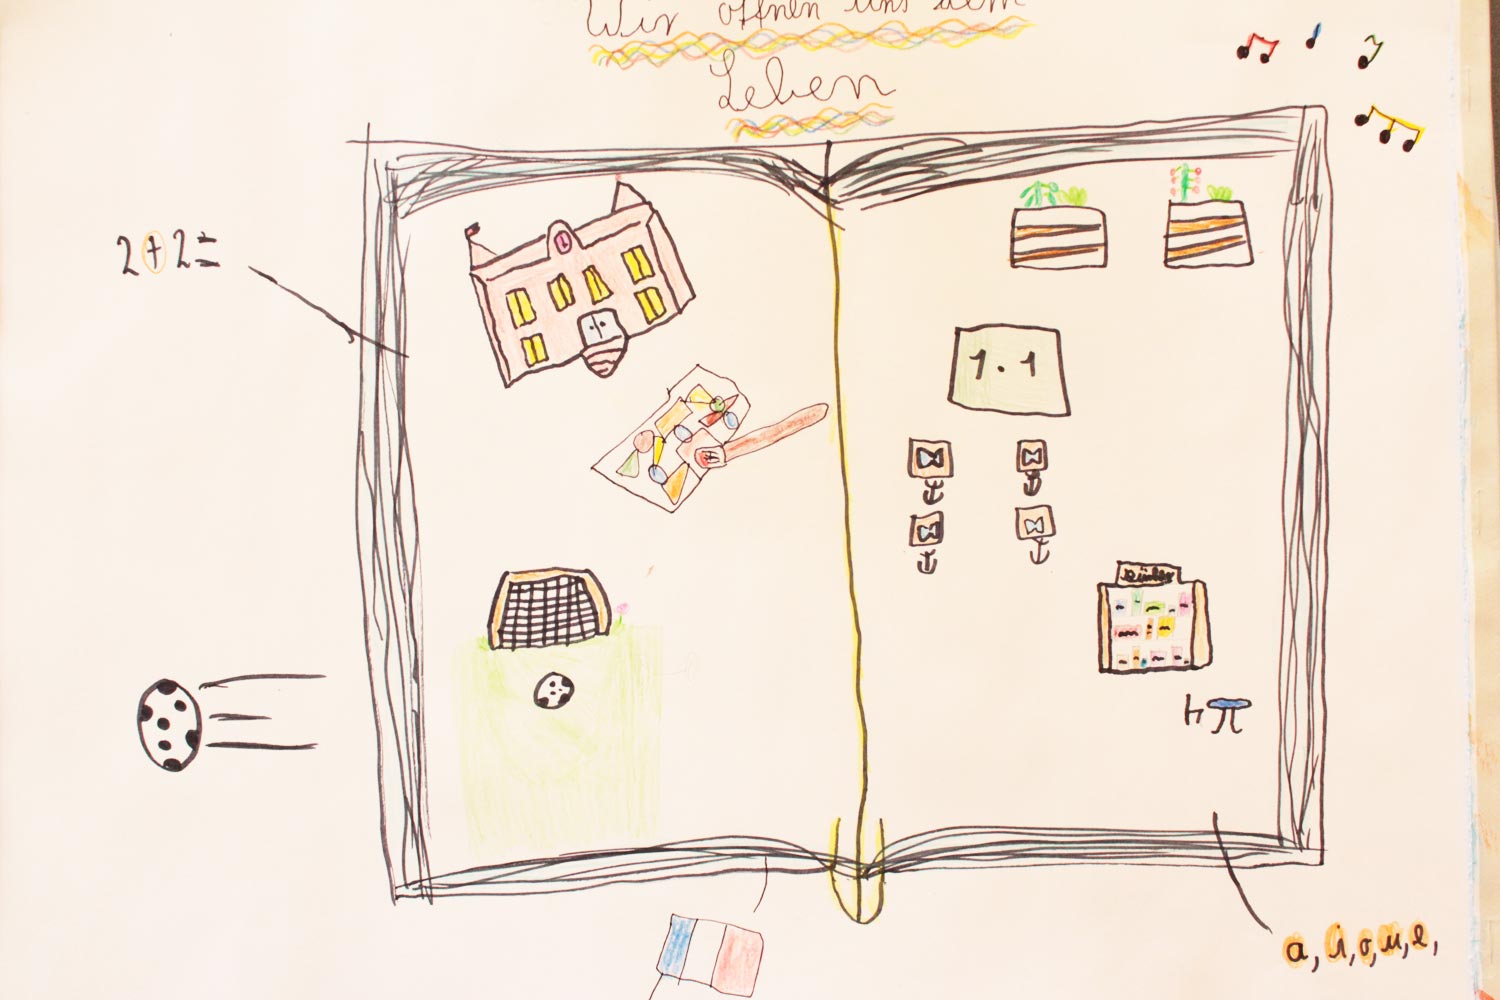 Wir öffnen uns dem
Leben
2+2=
1.1
Bücher
a, i, o, u, e,